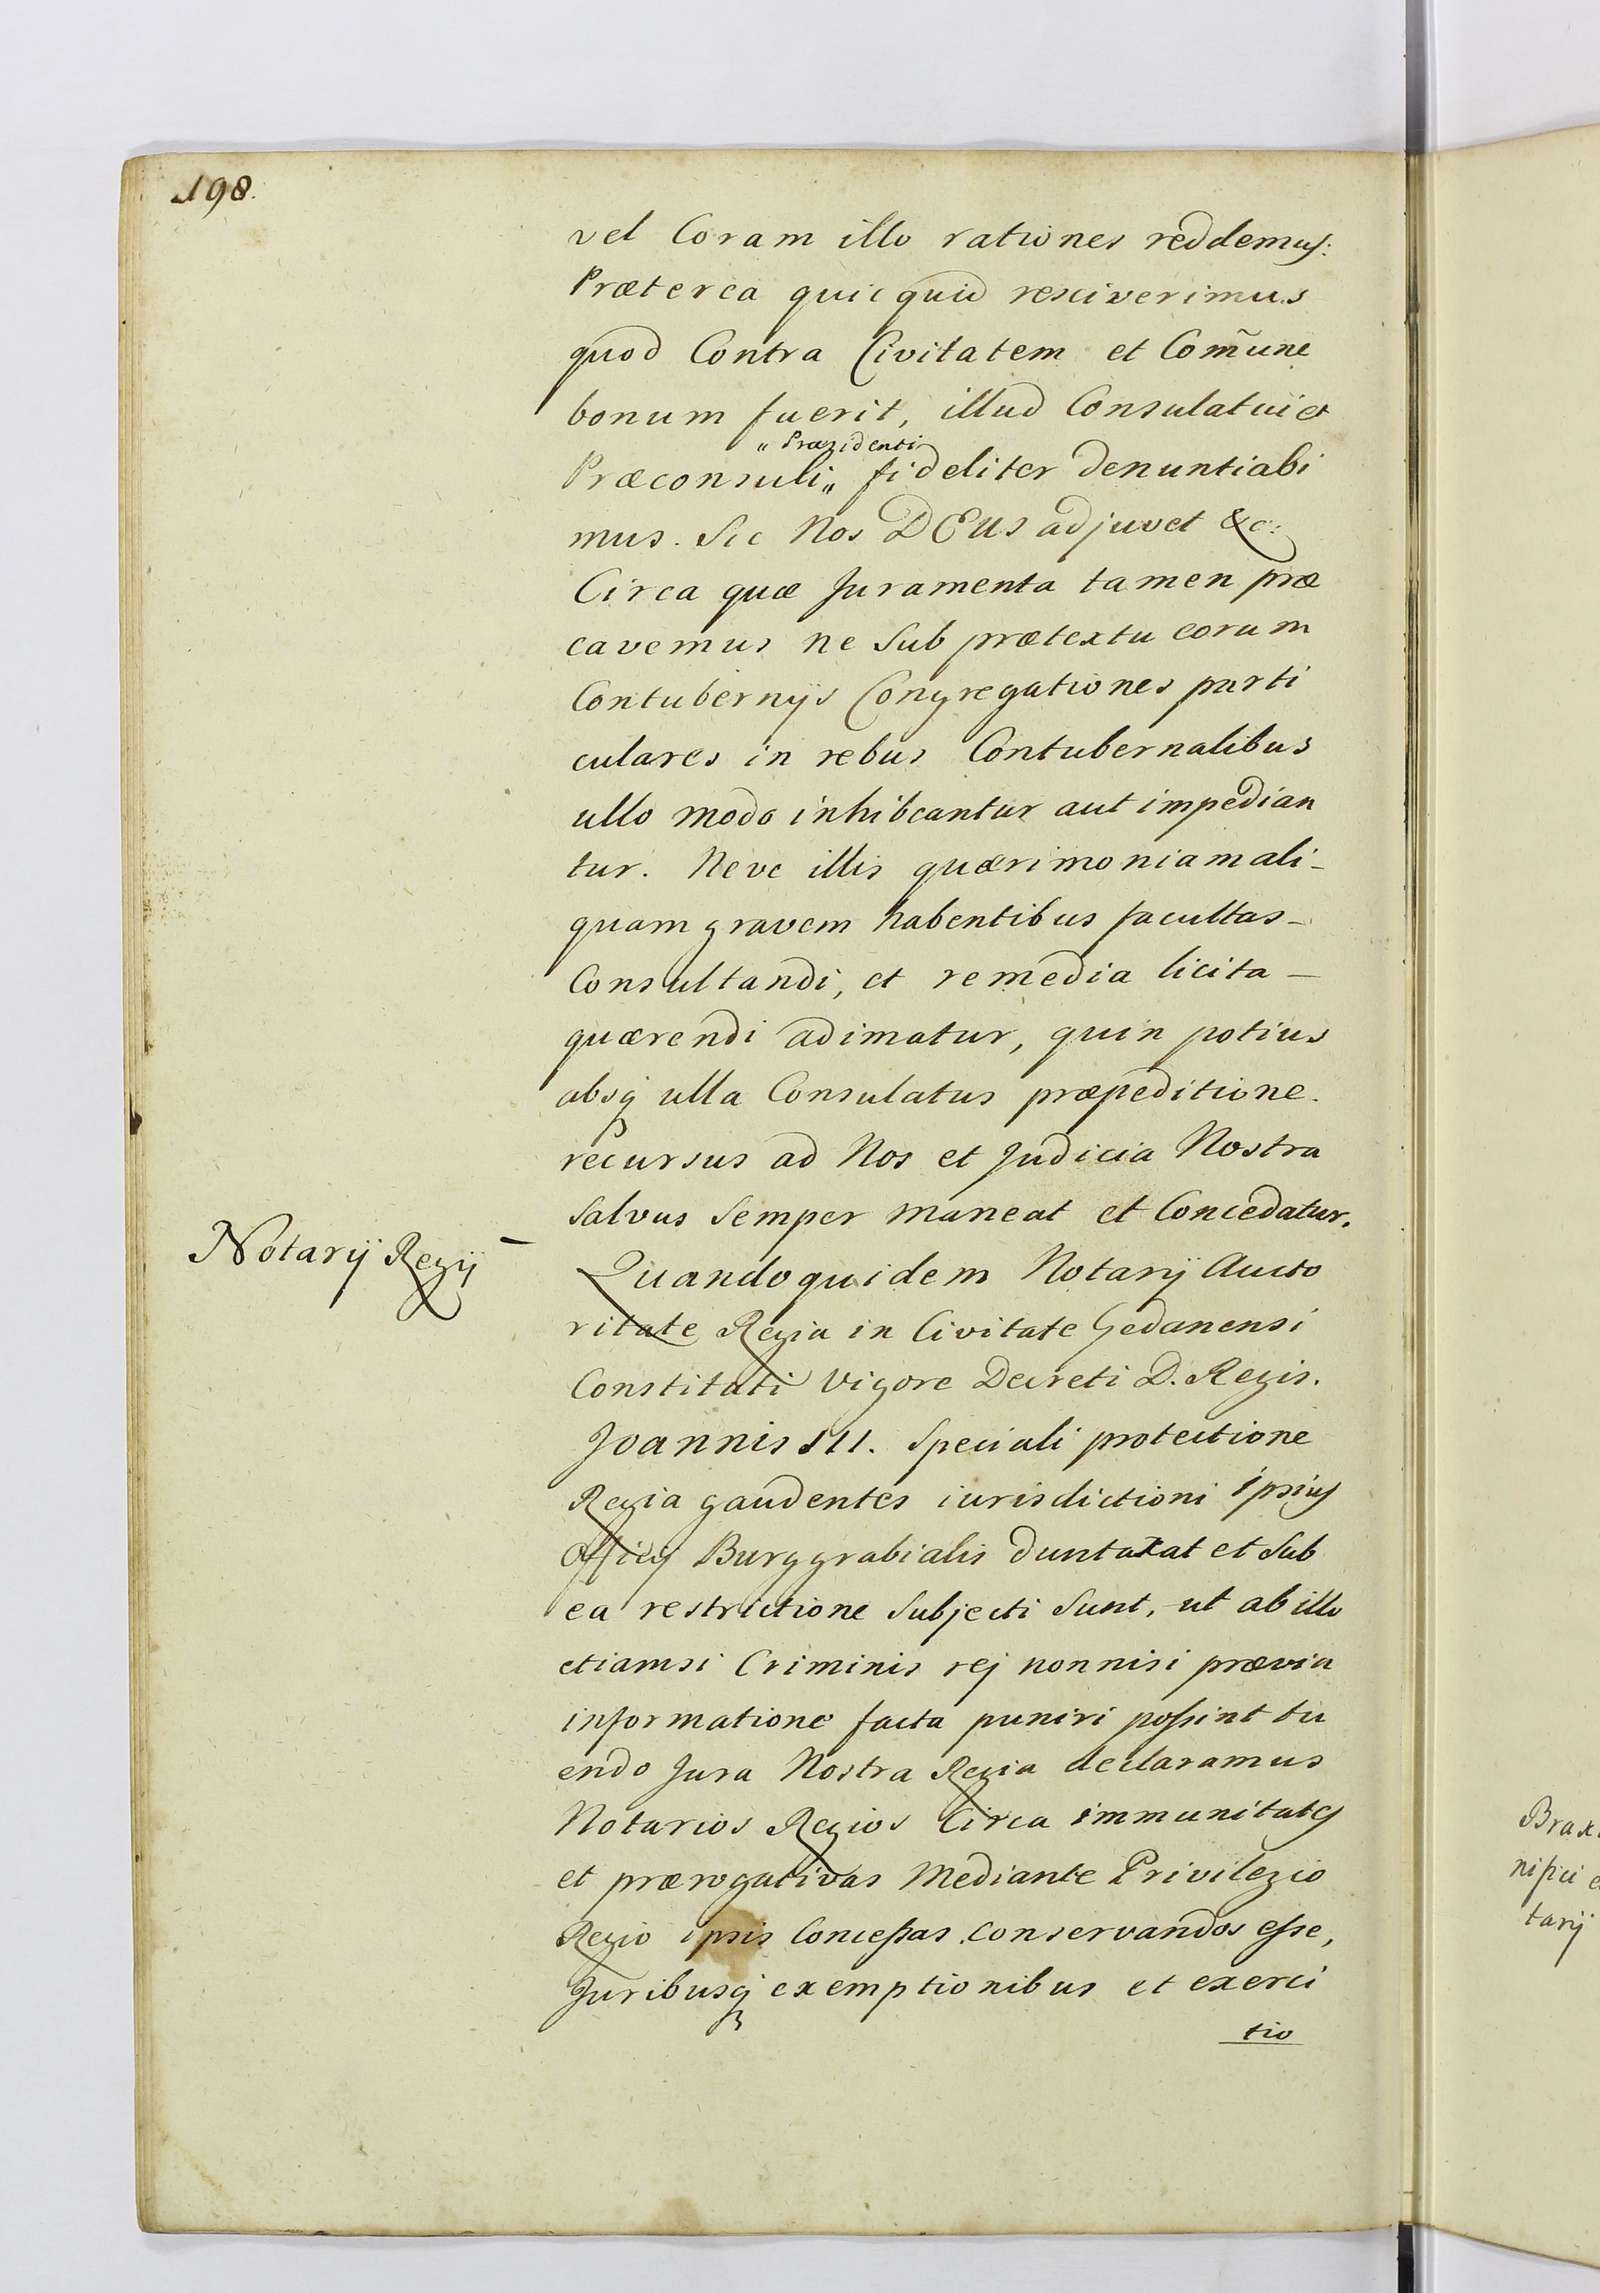 198.
vel Coram illo rationes reddemus:
Præterea quicquid resciverimus
quod Contra Civitatem et Com̃une
bonum fuerit, illud Consulatui et
„ Præzidenti
Præconsuli„ fideliter denuntiabi
mus. Sic Nos DEUS adjuvet &c:
Circa quæ Juramenta tamen præ
cavemus ne Sub prætextu eorum
Contubernijs Congregationes parti
culares in rebus Contubernalibus
ullo modo inhibeantur aut impedian
tur. Neve illis quærimoniam ali-
quam gravem habentibus facultas-
Consultandi, et remedia licita-
quærendi adimatur, quin potius
absq ulla Consulatus præpeditione.
recursus ad Nos et Judicia Nostra
Salvus Semper maneat et Concedatur.
Notarij Regij -
Quandoquidem Notarij Aucto
ritate Regia in Civitate Gedanensi
Constituti Vigore Decreti D. Regis.
Joannis III. Speciali protectione
Regia gaudentes iurisdictioni ipsius
Officij Burggrabialis duntaxat et Sub
ea restrictione Subjecti Sunt, ut ab illo
etiamsi Criminis rej nonnisi prævia
informatione facta puniri possint tu
endo Jura Nostra Regia declaramus
Notarios Regios Circa immunitates
et prærogativas Mediante Privilegio
Regio ipsis Concessas conservandos esse,
Juribusq exemptionibus et exerci
tio
Brax
tarij